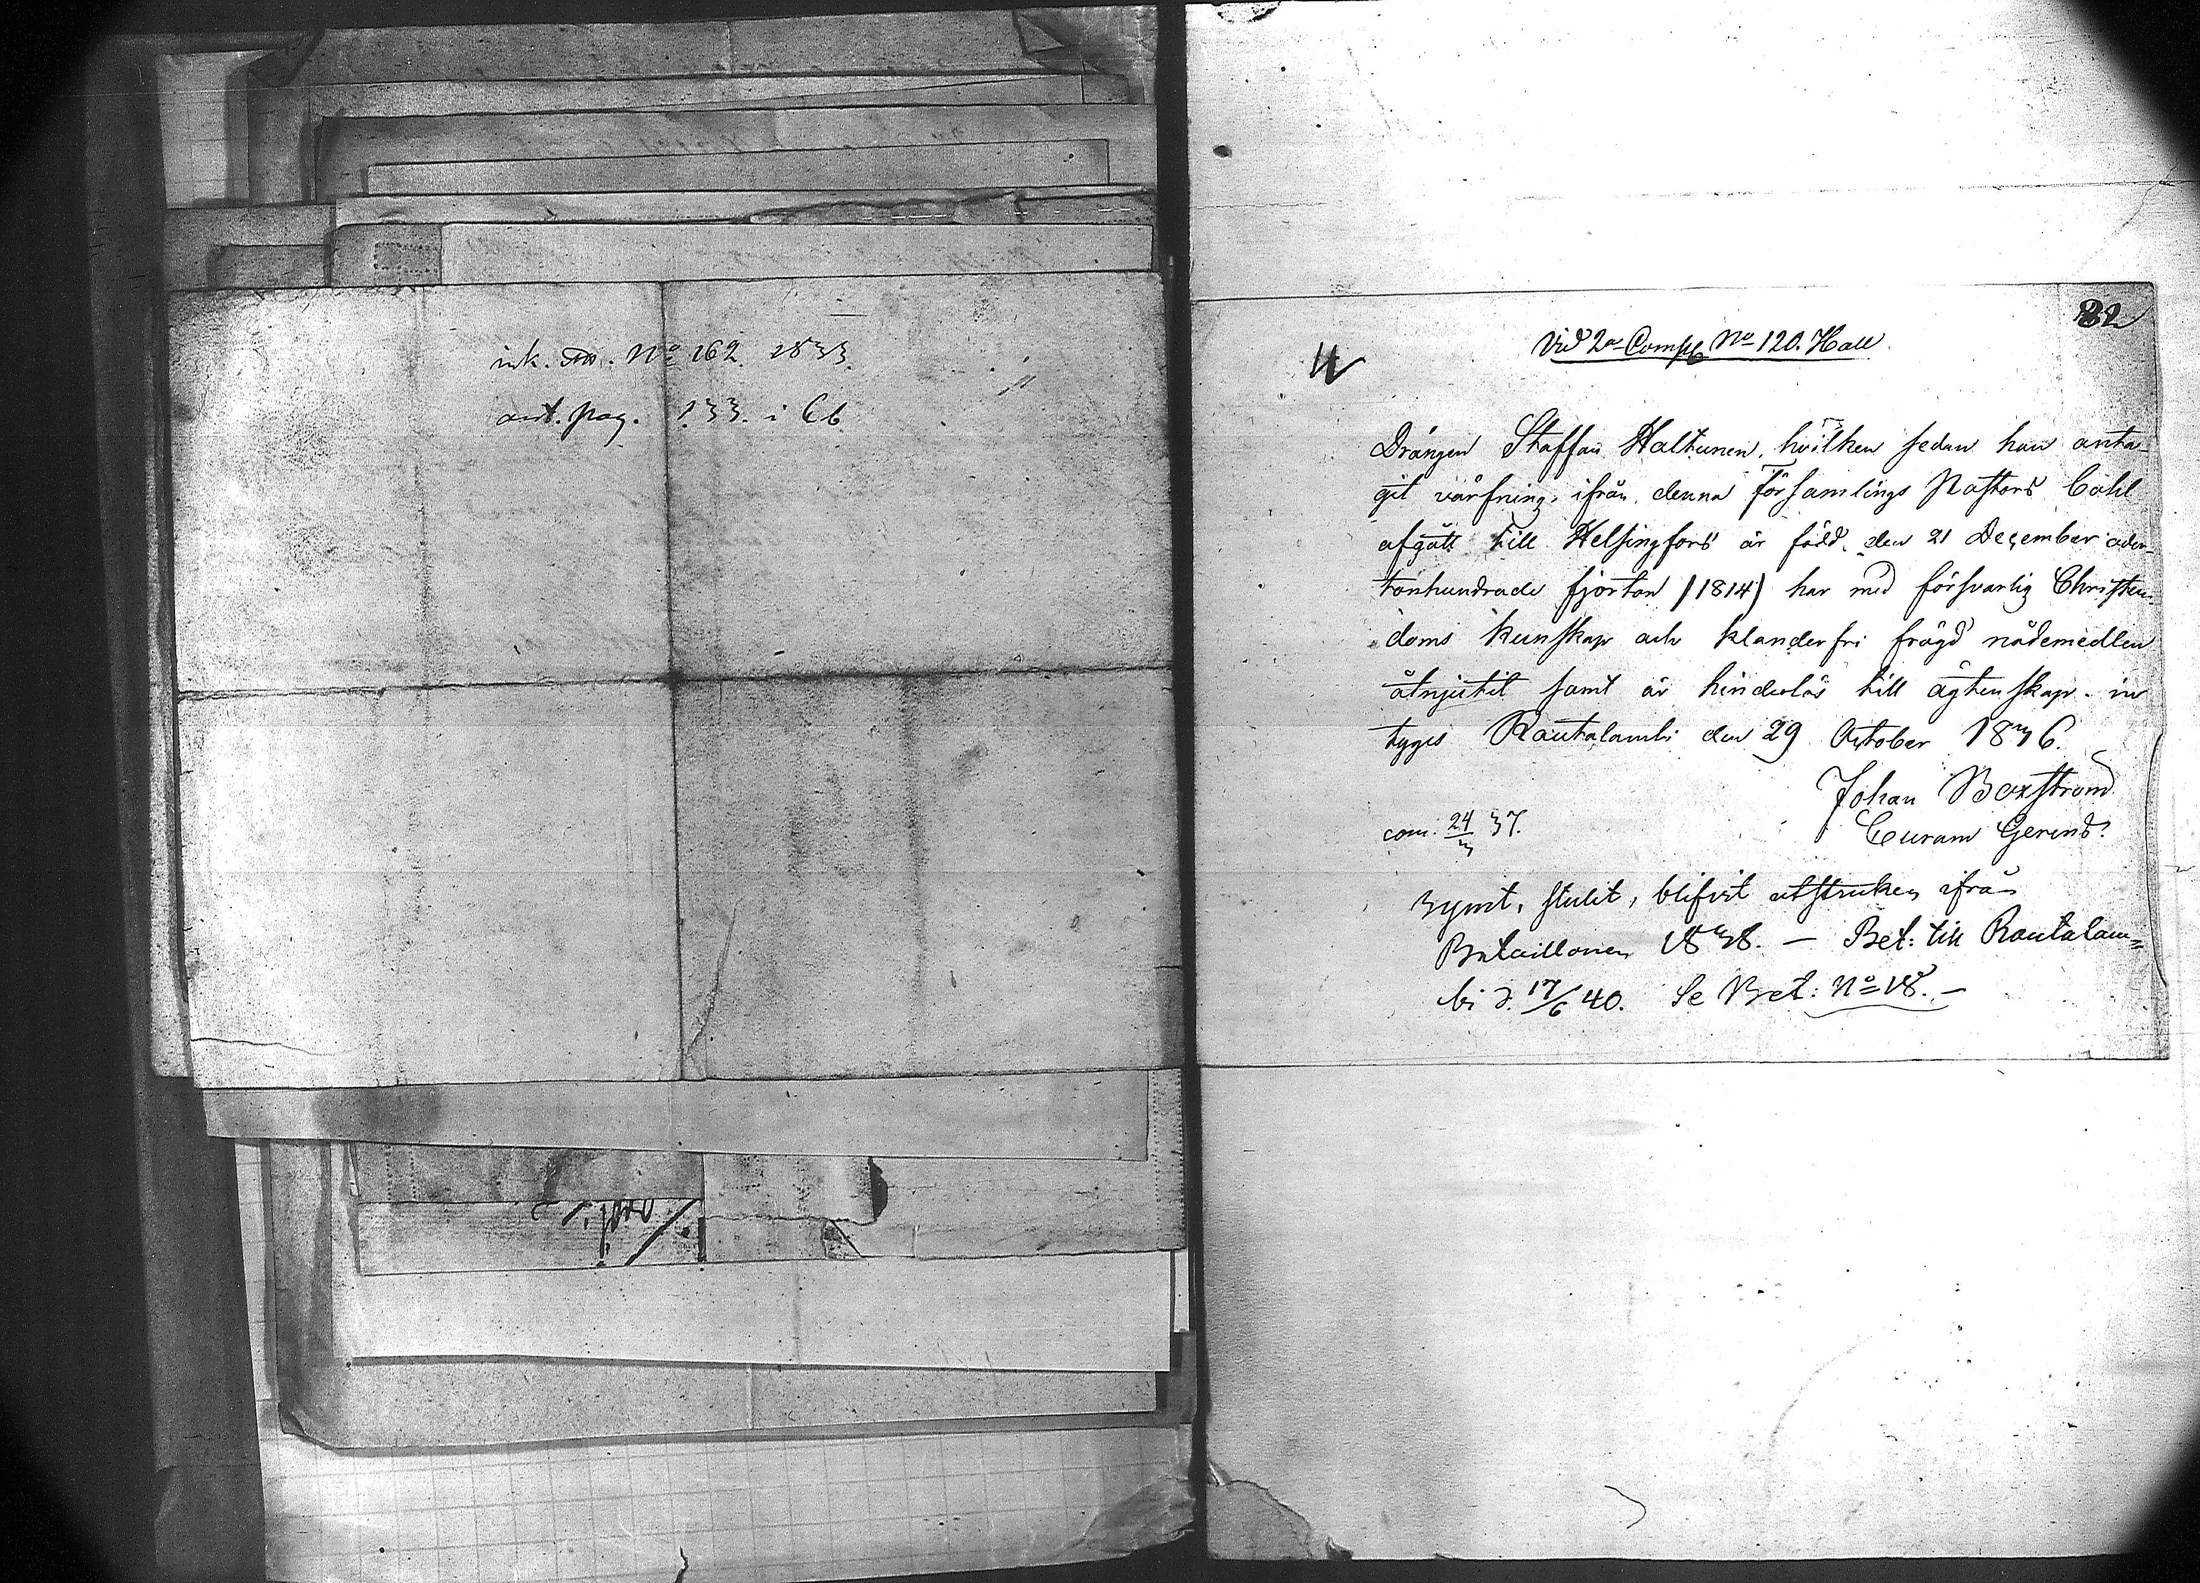 ink. No 162. 1833.
ant. pag. 133. i Cb.
82
Vid 2a Comp. No 120. Hall
Drängen Staffan Haltunen, hvilken sedan han anta-
git värfning, ifrån denna Församlings Pastors Cahl
afgått till Helsingfors är född den 21 December ader-
tonhundrade fjorton (1814) har med försvarlig Christen-
doms kunskap och klanderfri frägd nådemedlen
åtnjutit samt är hinderlös till ägtenskap. in
tygas Rautalambi den 29 October 1836.
Johan Boxström
Curam Gerens.
com. 24/3 37.
rymt, stulit, blifvit utstruken ifrån
Bataillonen 1838. — Bet: till Rautalam=
bi d. 17/6 40. Se Bet: No 18. —